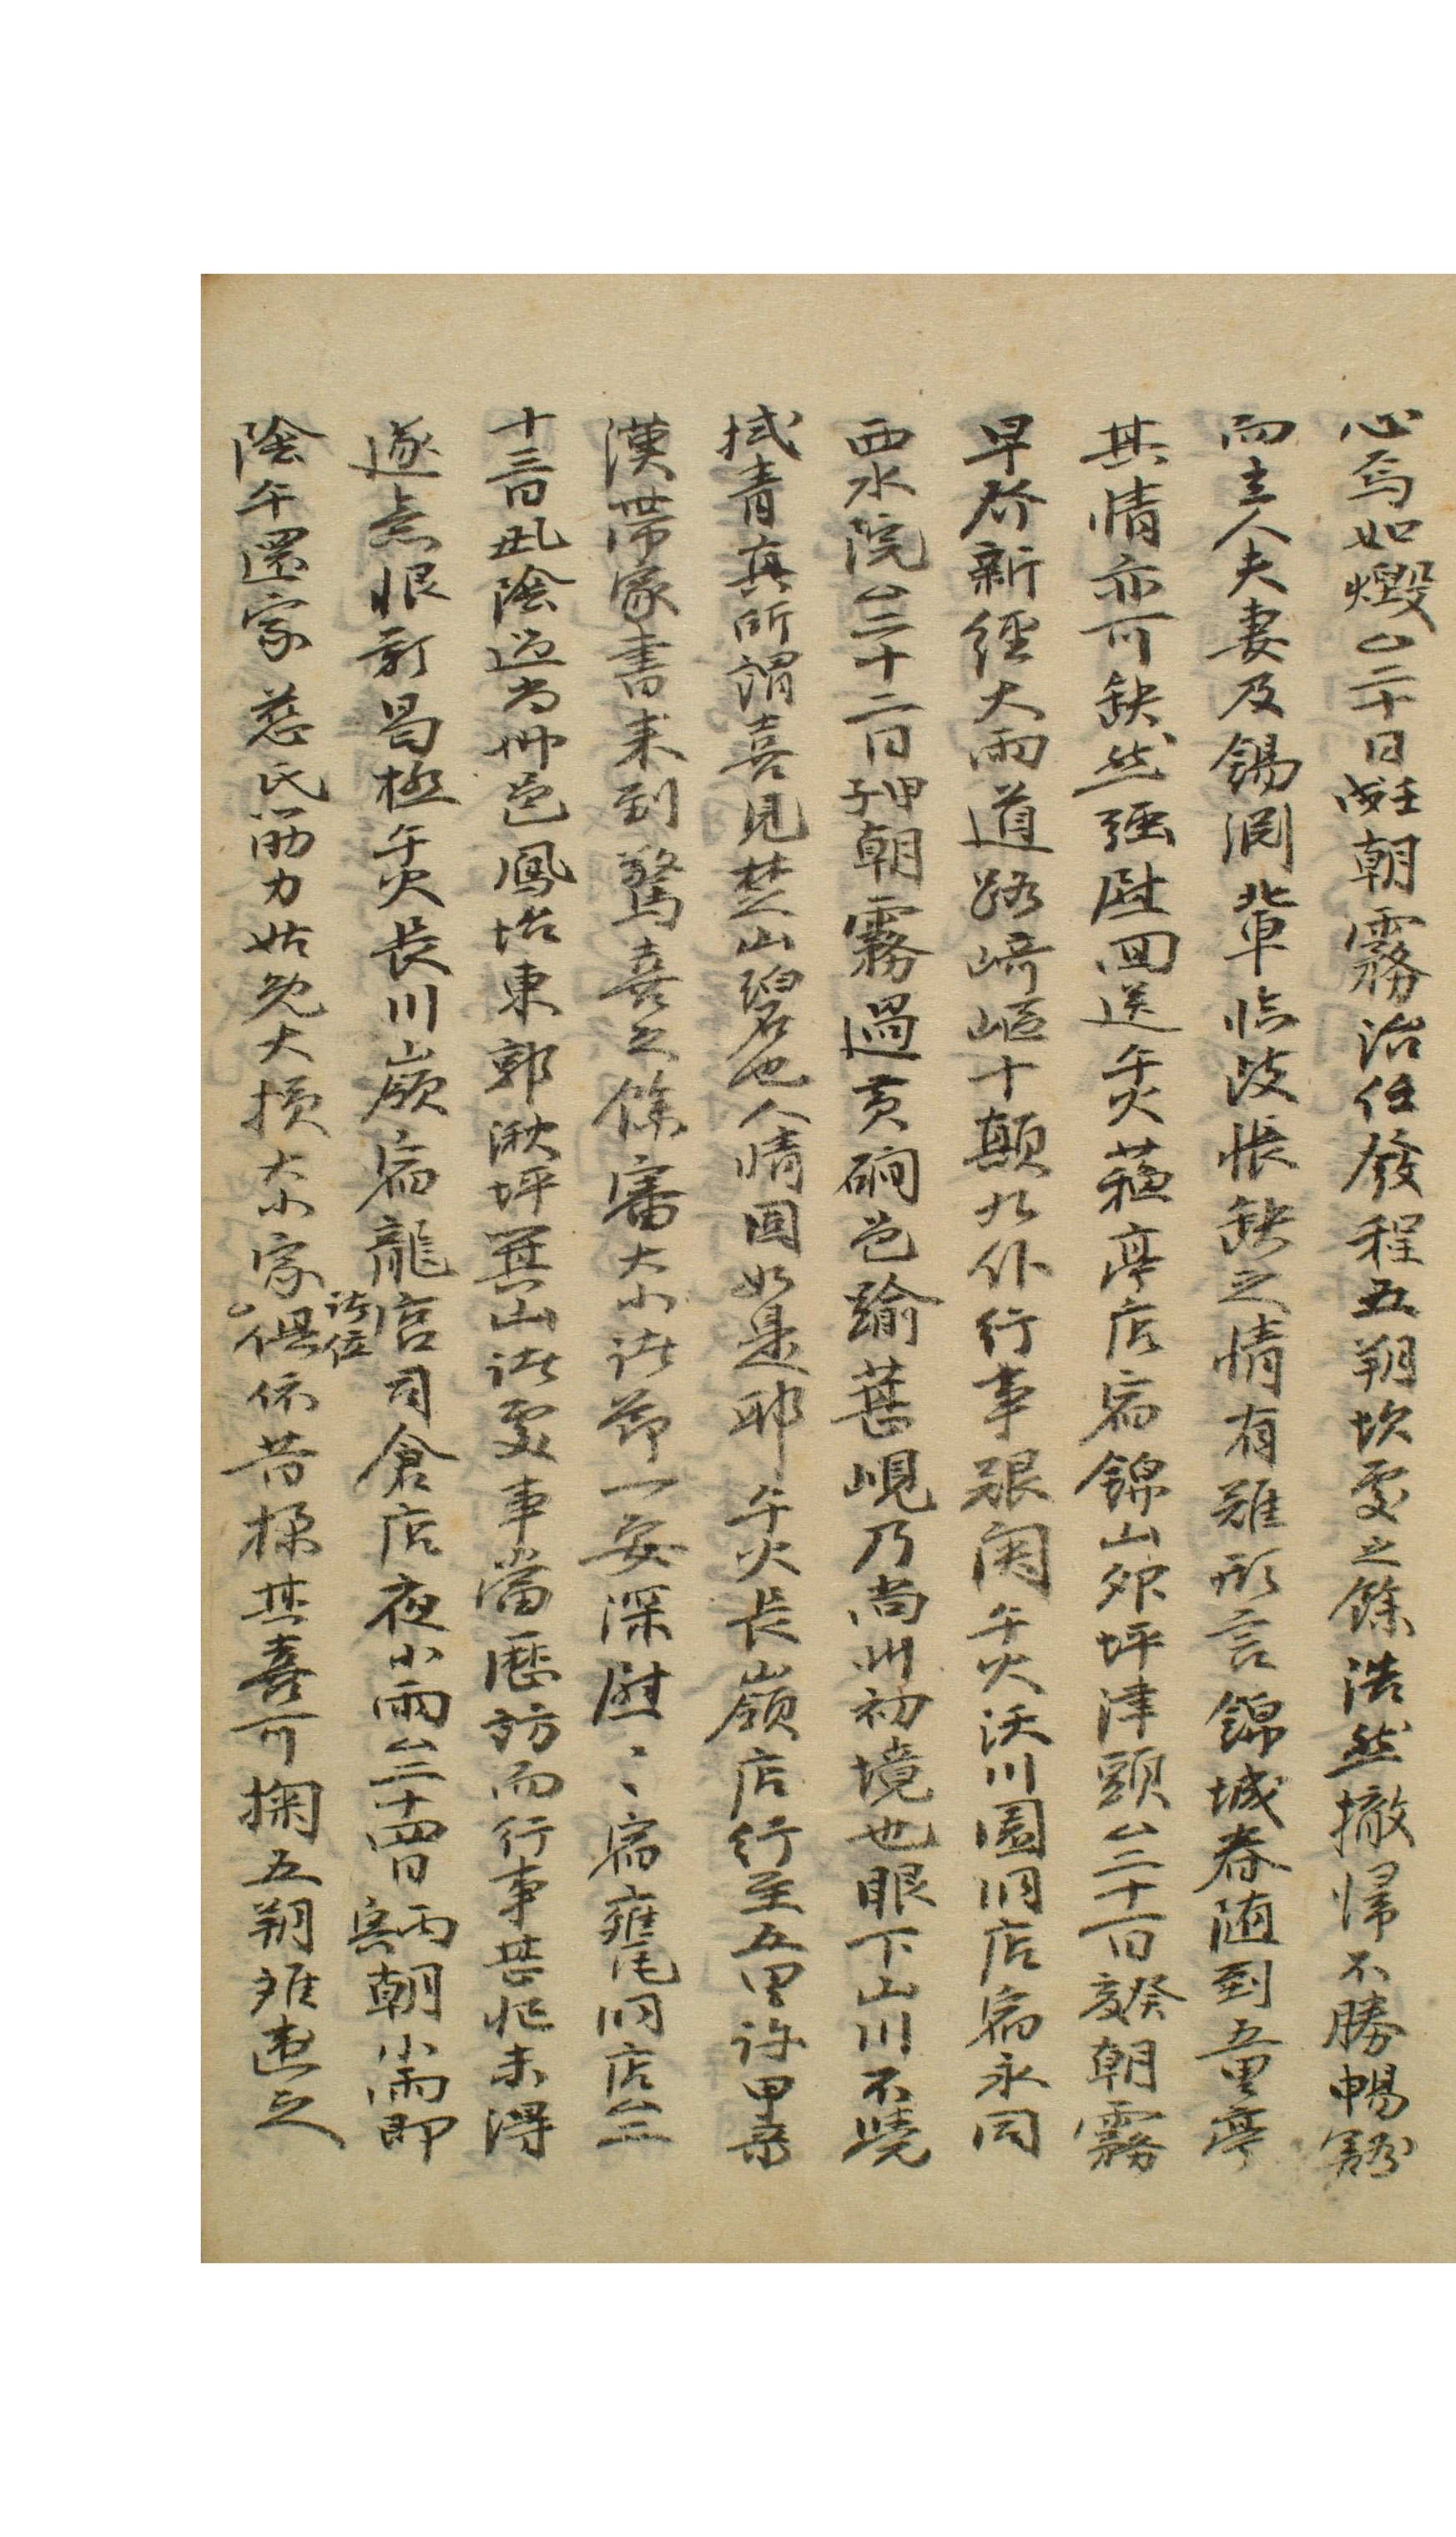 心焉如燬△二十日壬戌朝霧治任發程五朔坎寞之餘浩然撤帰不勝暢豁
而主人夫妻及錫淵輩臨歧悵缺之情有難形言錦城眷随到五里亭
其情亦可缺然强慰回送午火蘓亭店宿錦山邜坪津頭△二十一日癸亥朝霧
早發新經大雨道路崎嶇十顛九仆行事艰関午火沃川圓洞店宿永同
西水院△二十二日甲子朝霧過黃磵邑踰葚峴乃尚州初境也眼下山川不覺
拭青真所謂喜見楚山碧也人情固如是耶午火長嶺店行至五里許甲彔
漢带家書来到驚喜之餘審大小諸節一安深慰〻〻宿甕洞店△二
十三日乙丑陰过尚州邑鳳坮東郭湫坪箕山諸處事當歷訪而行事甚忙未得
遂意恨歎曷極午火長川嶺宿龍宮司倉店夜小雨△二十四日丙寅朝小雨即
陰午還家慈氏筋力姑免大損大小家諸位俱依昔樣其喜可掬五朔難違之